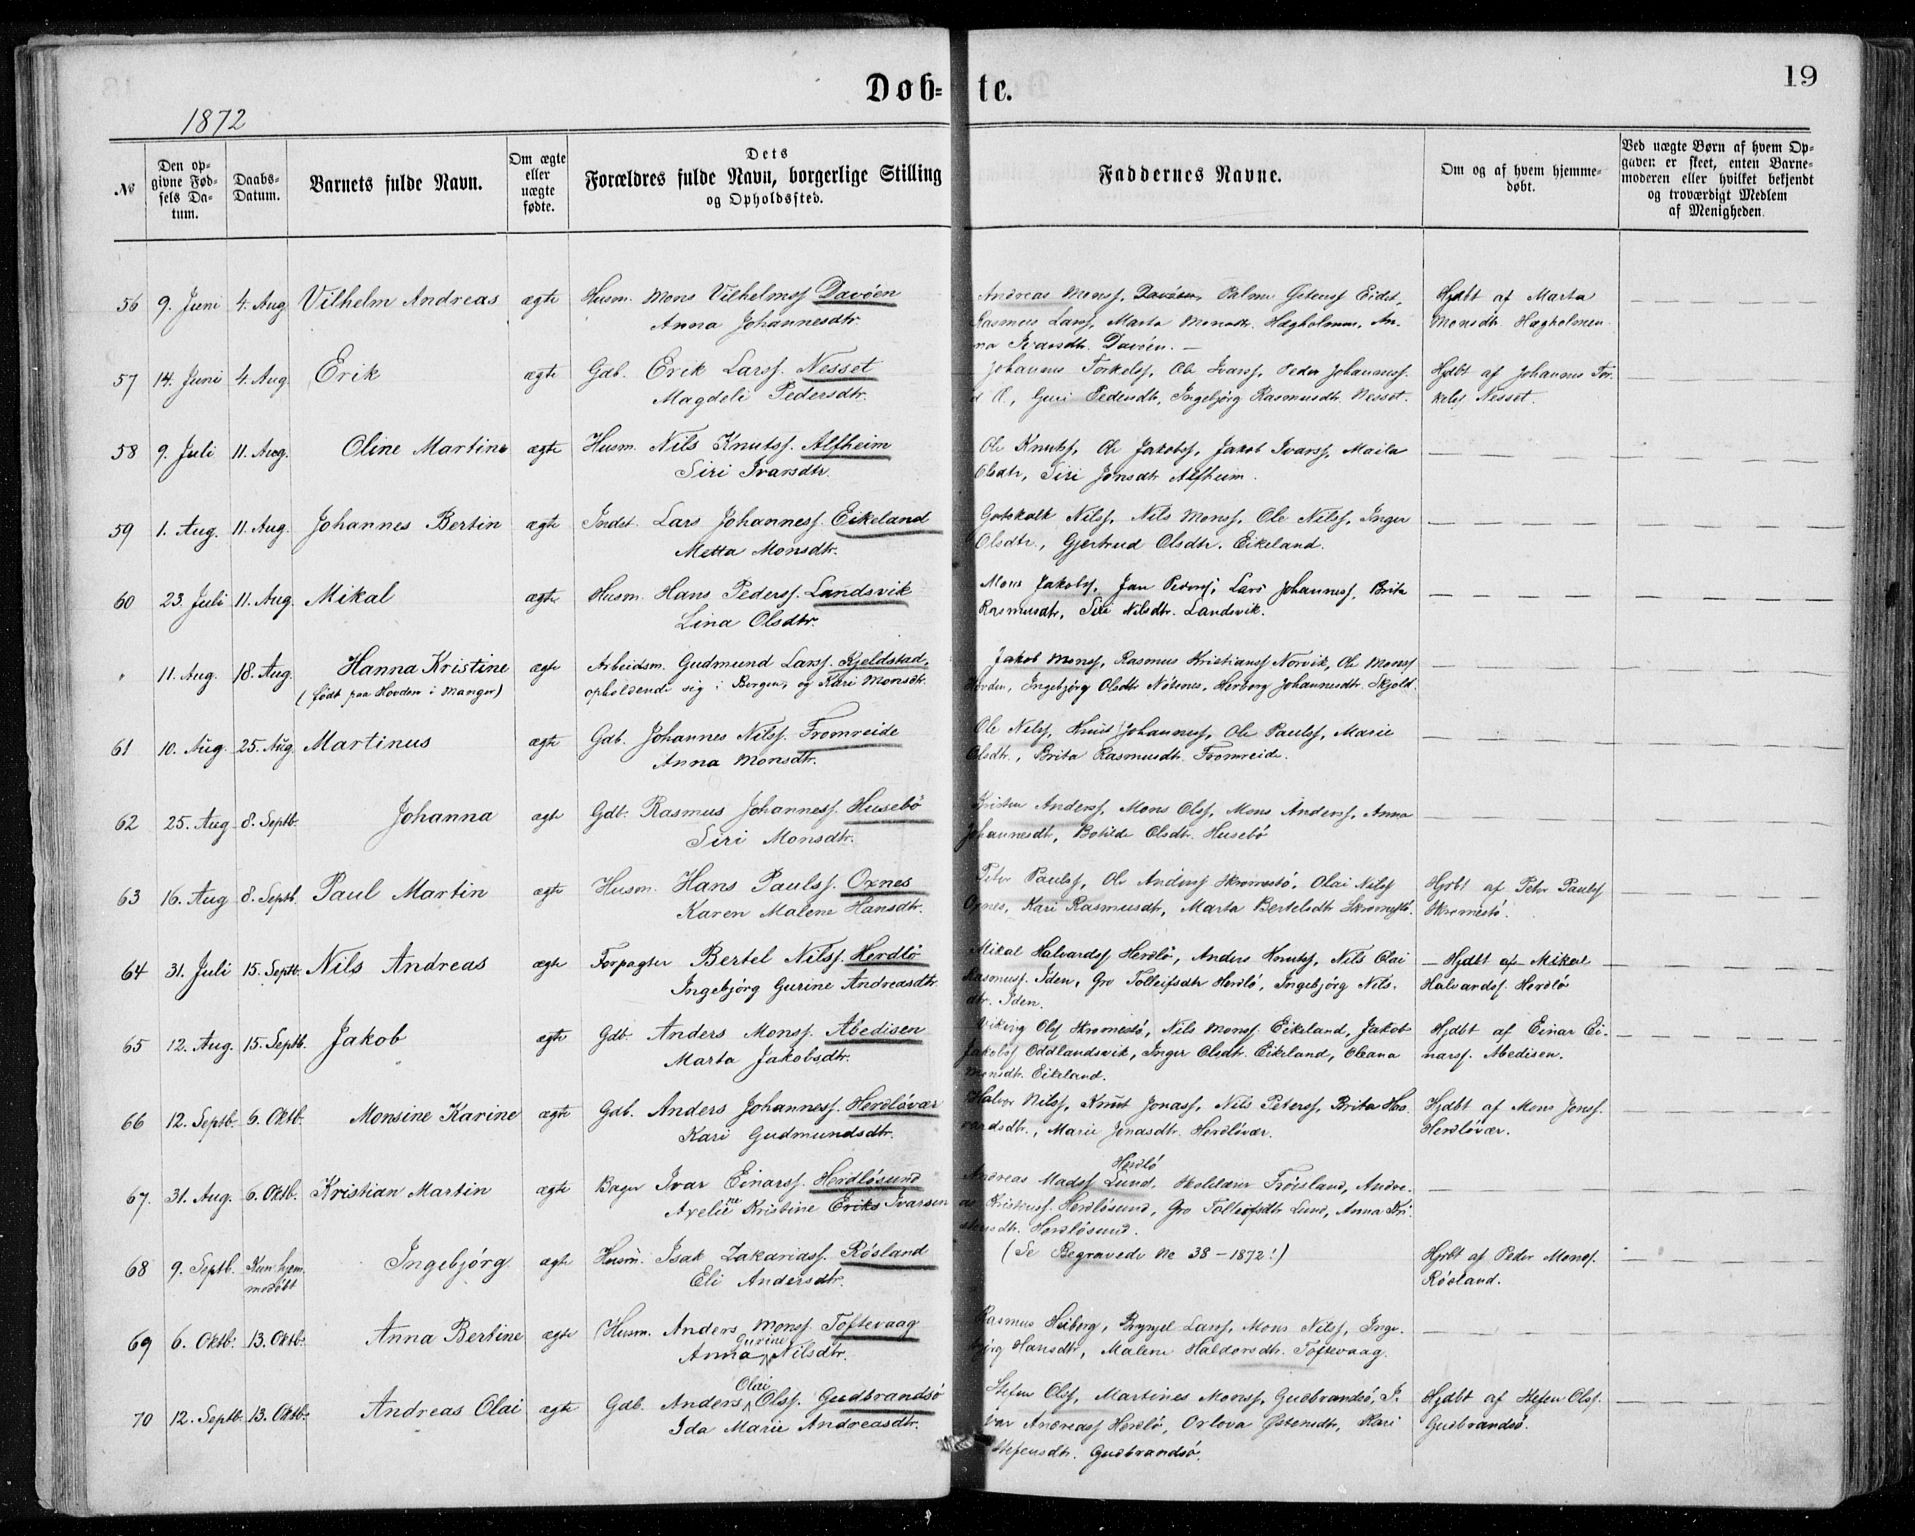 Døb= te.
19
1872
№
Den op-
givne Fød-
sels Da-
tum.
Daabs-
Datum.
Barnets fulde Navn.
Om ægte
eller
uægte
fødte.
Dets
Forældres fulde Navn, borgerlige Stilling
og Opholdssted.
Faddernes Navne.
Om og af hvem hjemme-
døbt.
Ved uægte Børn af hvem Op-
gaven er skeet, enten Barne-
moderen eller hvilket bekjendt
og troværdigt Medlem
af Menigheden.
56 9. Juni 4. Aug. Vilhelm Andreas ægte Husm. Mons Vilhelmsf. Davöen
Anna Johannesdtr.
Andreas Monsf. Davöen, Eidet,
Rasmus Larsf, Marta Monsdtr. Hægholmen, An-
na Ivarsdtr. Davöen. —
Hjdbt af Marta
Monsdtr. Hægholmen
57 14. Juni 4. Aug. Erik ægte Gdb. Erik Larsf. Nesset
Magdeli Pedersdtr.
Johannes Torkelsf, Ole Ivarsf, Peder Johannesf
Guri Pedersdtr, Ingebjörg Rasmusdtr. Nesset.
Hjdbt af Johannes Tor-
kelsf Nesset.
58 9. Juli 11. Aug. Oline Martine ægte Husm. Nils Knutsf. Alfheim
Siri Ivarsdtr.
Ole Knutsf, Ole Jakobsf, Jakob Ivarsf, Maila
Olsdtr, Siri Jonsdtr Alfheim.
59 1. Aug. 11. Aug. Johannes Bertin ægte Indst. Lars Johannesf. Eikeland
Metta Monsdtr.
Gotskalk Nilsf, Nils Monsf, Ole Nilsf, Inger
Olsdtr, Gjertrud Olsdtr. Eikeland.
60 23. Juli 11. Aug. Mikal ægte Husm. Hans Pedersf. Landsvik
Lina Olsdtr.
Mons Jakobsf, Jan Pedersf, Lars Johannesf, Brita
Rasmusdtr, Siri Nilsdtr. Landsvik.
" 11. Aug. 18. Aug. Hanna Kristine ægte Arbeidsm. Gudmund Larsf. Kjeldstad,
(født paa Hovden i Manger) opholdende sig i Bergen, og Kari Monsdtr.
Jakob Monsf, Rasmus Kristiansf Norvik, Ole Monsf
Hovden, Ingebjörg Olsdtr Nötsnes, Herborg Johannesdtr. Skjold.
61 10. Aug. 25. Aug. Martinus ægte Gdb. Johannes Nilsf. Fromreide
Anna Monsdtr.
Ole Nilsf, Knut Johannesf, Ole Paulsf, Marie
Olsdtr., Brita Rasmusdtr. Fromreide.
62 25. Aug 8. Septb. Johanna ægt Gdb. Rasmus Johannesf. Husebö
Siri Monsdtr.
Kristen Andersf, Mons Olsf, Mons Andersf, Anna
Johannesdtr, Botilde Olsdtr. Husebö
63 16. Aug 8. Septb. Paul Martin ægte Husm. Hans Paulsf. Oxnes
Karen Malene Hansdtr.
Peter Paulsf, Ole Andersf Skromestö, Olai Nilsf
Oxnes, Kari Rasmusdtr, Marta Bertelsdtr Skromestö.
Hjdbt af Peter Paulsf
Skromestö.
64 31. Juli 15. Septb. Nils Andreas ægte Forpagter Bertel Nilsf. Herdlö
Ingebjörg Gurine Andreasdtr.
Mikal Halvardsf Herdlö, Anders Knutsf, Nils Olai
Rasmusf. Iden, Gro Tolleifsdtr Herdlö, Ingebjörg Nils-
dtr. Iden.
Hjdbt af Mikal
Halvardsf. Herdlö
65 12. Aug. 15. Septb. Jakob ægte Gdb. Anders Monsf. Abedisen
Marta Jakobsdtr.
Viking Olsf Skromestö, Nils Monsf Eikeland, Jakob
Jakobsf Oddlandsvik, Inger Olsdtr. Eikeland, Oleana
Monsdtr. Eikeland.
Hjdbt af Einar Ei-
narsf. Abedisen.
66 12. Septb. 6. Oktb. Monsine Karine ægte Gdb. Anders Johannesf. Herdlövær
Kari Gudmundsdtr.
Halvor Nilsf, Knut Jonasf, Nils Petersf, Brita Hav-
vardsdtr., Marie Jonasdtr. Herdlövær.
Hjdbt af Mons Jonsf.
Herdlövær.
67. 31. Aug. 6. Oktb. Kristian Martin ægte Bager Ivar Einarsf. Herdlösund
Axeline Kristine Eriks Ivarsen
Herdlö
Andreas Madsf Lund. Skolelærer Fröisland, Andre-
as Kristensf. Herdlösund, Gro Tolleifsdtr Lund, Anna Kri-
stensdtr. Herdlösund.
68 9. Septb. Kun hjem-
medöbt Ingebjörg ægte Husm. Isak Zakariasf. Rösland
Eli Andersdtr.
(Se Begravede No 38 – 1872!)
Hjdbt af Peder Monsf.
Rösland.
69 6. Oktb. 13. Oktb. Anna Bertine ægte Husm. Anders Monsf Toftevaag
Gurine
Anna Nilsdtr.
Rasmus Heiberg, Brynjel Larsf, Mons Nilsf, Inge-
björg Hansdtr, Malene Haldorsdtr. Toftevaag.
70 12. Septb. 13. Oktb. Andreas Olai ægte Gdb. Anders Olai Olsf. Gudbrandsö
Ida Marie Andreasdtr.
Stefen Olsf, Martines Monsf, Gudbrandsö, I-
var Andreasf Herdlö, Orlova Östensdtr, Kari
Stefensdtr. Gudbrandsö.
Hjdbt af Stefen Olsf.
Gudbrandsö.